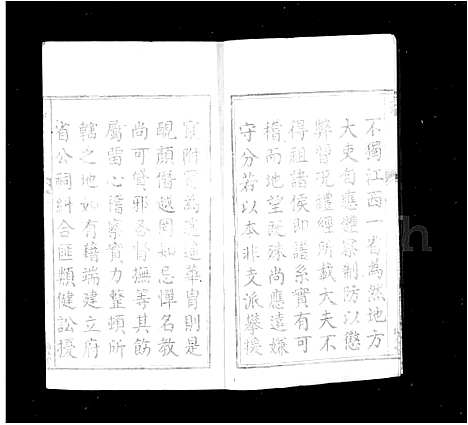 不獨江西一省為然地方
大吏自應體察制防以懲
弊習況禮經所載大夫不
得祖諸侯即譜系實有可
稽而地望既殊尚應遠嫌
守分若以本非支派攀援
冒附冀為遙遙華胄則是
靦顏僭越罔知忌憚名教
尚可貸邪各督撫等其飭
屬留心稽察實力整頓所
轄之地如有藉端建立府
省公祠糾合匪類健訟擾